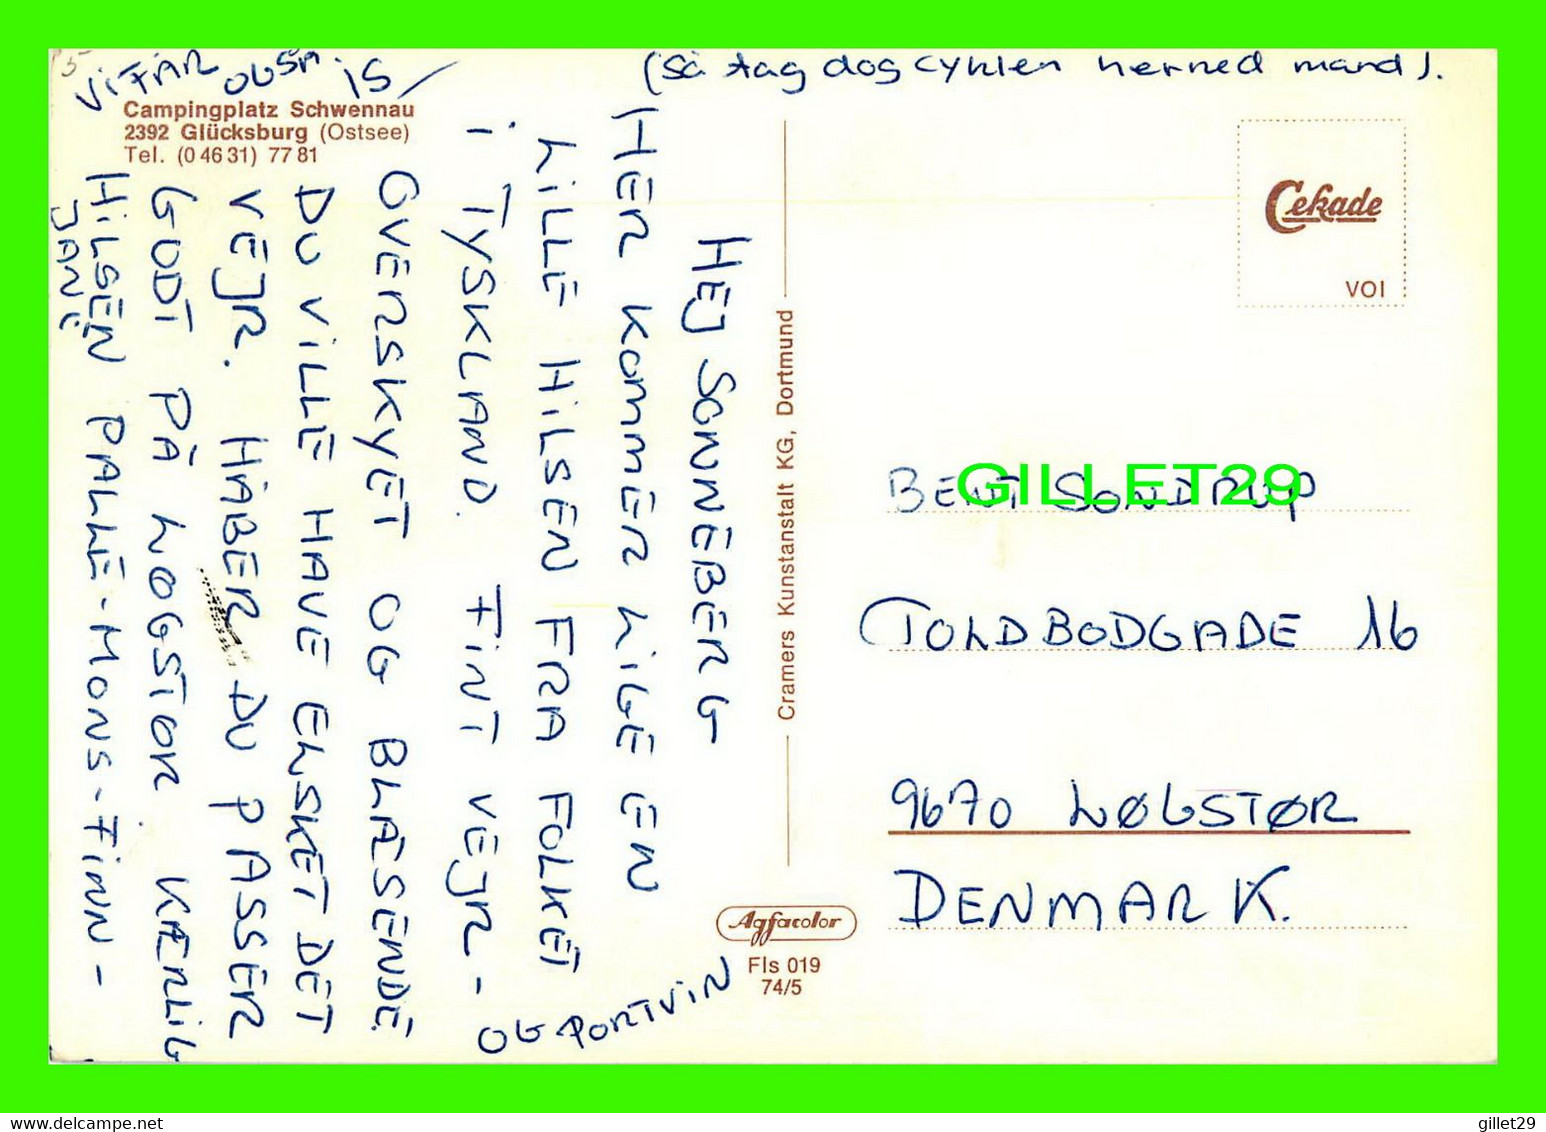 5
ViFÅR OGSÅ iS/
(så tag dog cyklen herned mand).
Campingplatz Schwennau
2392 Glücksburg (Ostsee)
Tel. (0 46 31) 77 81
HEJ SONNEBERG
HER KOMMER LIGE EN
LILLE HILSEN FRA FOLKET
i TYSKLAND. FINT VEJR-
OVERSKYET OG BLÆSENDE
DU VILLE HAVE ELSKET DET
VEJR. HÅBER DU PASSER
GODT PÅ LOGSTOR KÆRLIG
HILSEN PALLE-MONS-FINN-
JANE
OG PORTVIN
Cramers Kunstanstalt KG, Dortmund
Agfacolor
Fls 019
74/5
Cekade
VOI
BENT SONDRUP
GILLET29
TOLDBODGADE 16
9670 LØGSTØR
DENMARK.
gillet29